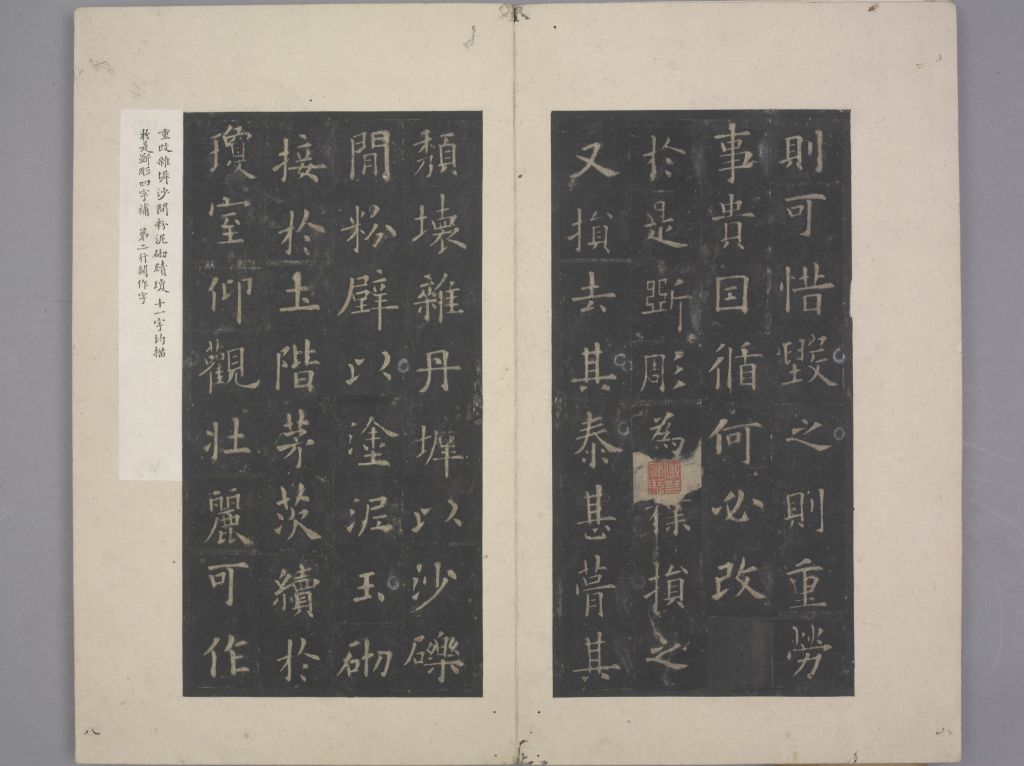 則可惜毀之則重勞
事貴因循何必改
於是斲彫為樸損之
又損去其泰甚葺其
頹壞雜丹墀以沙礫
閒粉壁以塗泥玉砌
接於土階茅茨續於
瓊室仰觀壯麗可作
重改雜墀沙閒粉泥砌續瓊 十一字均描
於是斲彫四字補 第二行闕作字